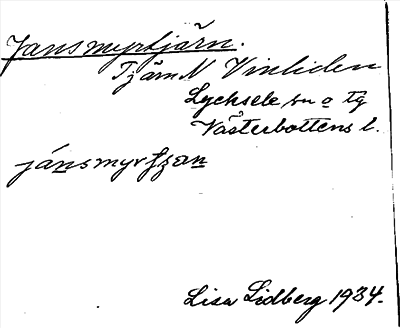 Jansmyrtjärn.
Tjärn N Vinliden
Lycksele sn o tg
Västerbottens l.
jánsmyrʃʒæn
Lisa Lidberg 1934.